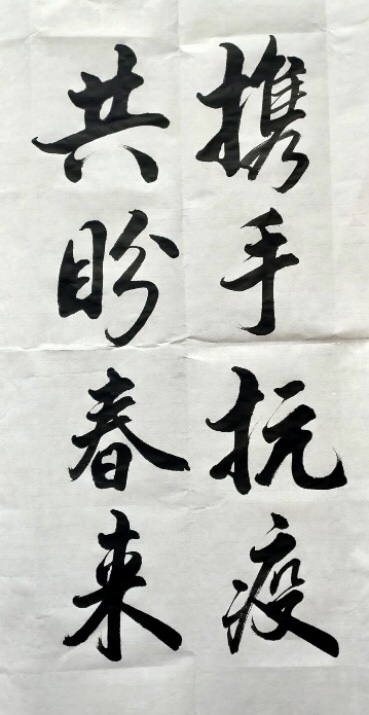 携手抗疫
共盼春来